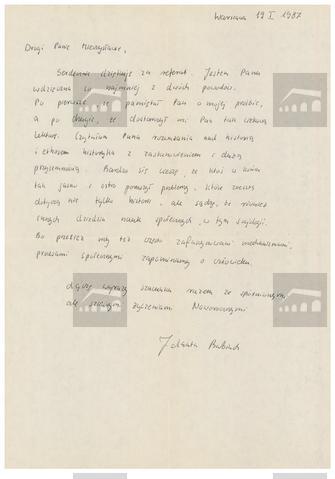 Warszawa 19 I 1987
Drogi Panie Mieczysławie,
Serdecznie dziękuję za referat. Jestem Panu
wdzięczna co najmniej z dwóch powodów.
Po pierwsze, że pamiętał Pan o mojej prośbie,
a po drugie, że dostarczył mi Pan tak ciekawą
lekturę. Czytałam Pana rozważania nad historią
i etosem historyka z zastanowieniem i dużą
przyjemnością. Bardzo się cieszę, że ktoś u nas
tak jasno i ostro poruszył problemy, które
dotyczą nie tylko historii, ale sądzę, że również
innych dziedzin nauk społecznych, w tym socjologii.
Bo przecież my też często zafascynowani mechanizmami,
procesami społecznymi zapominamy o człowieku.
Łączę wyrazy szacunku razem ze spóźnionymi
ale szczerymi życzeniami Noworocznymi
Jolanta